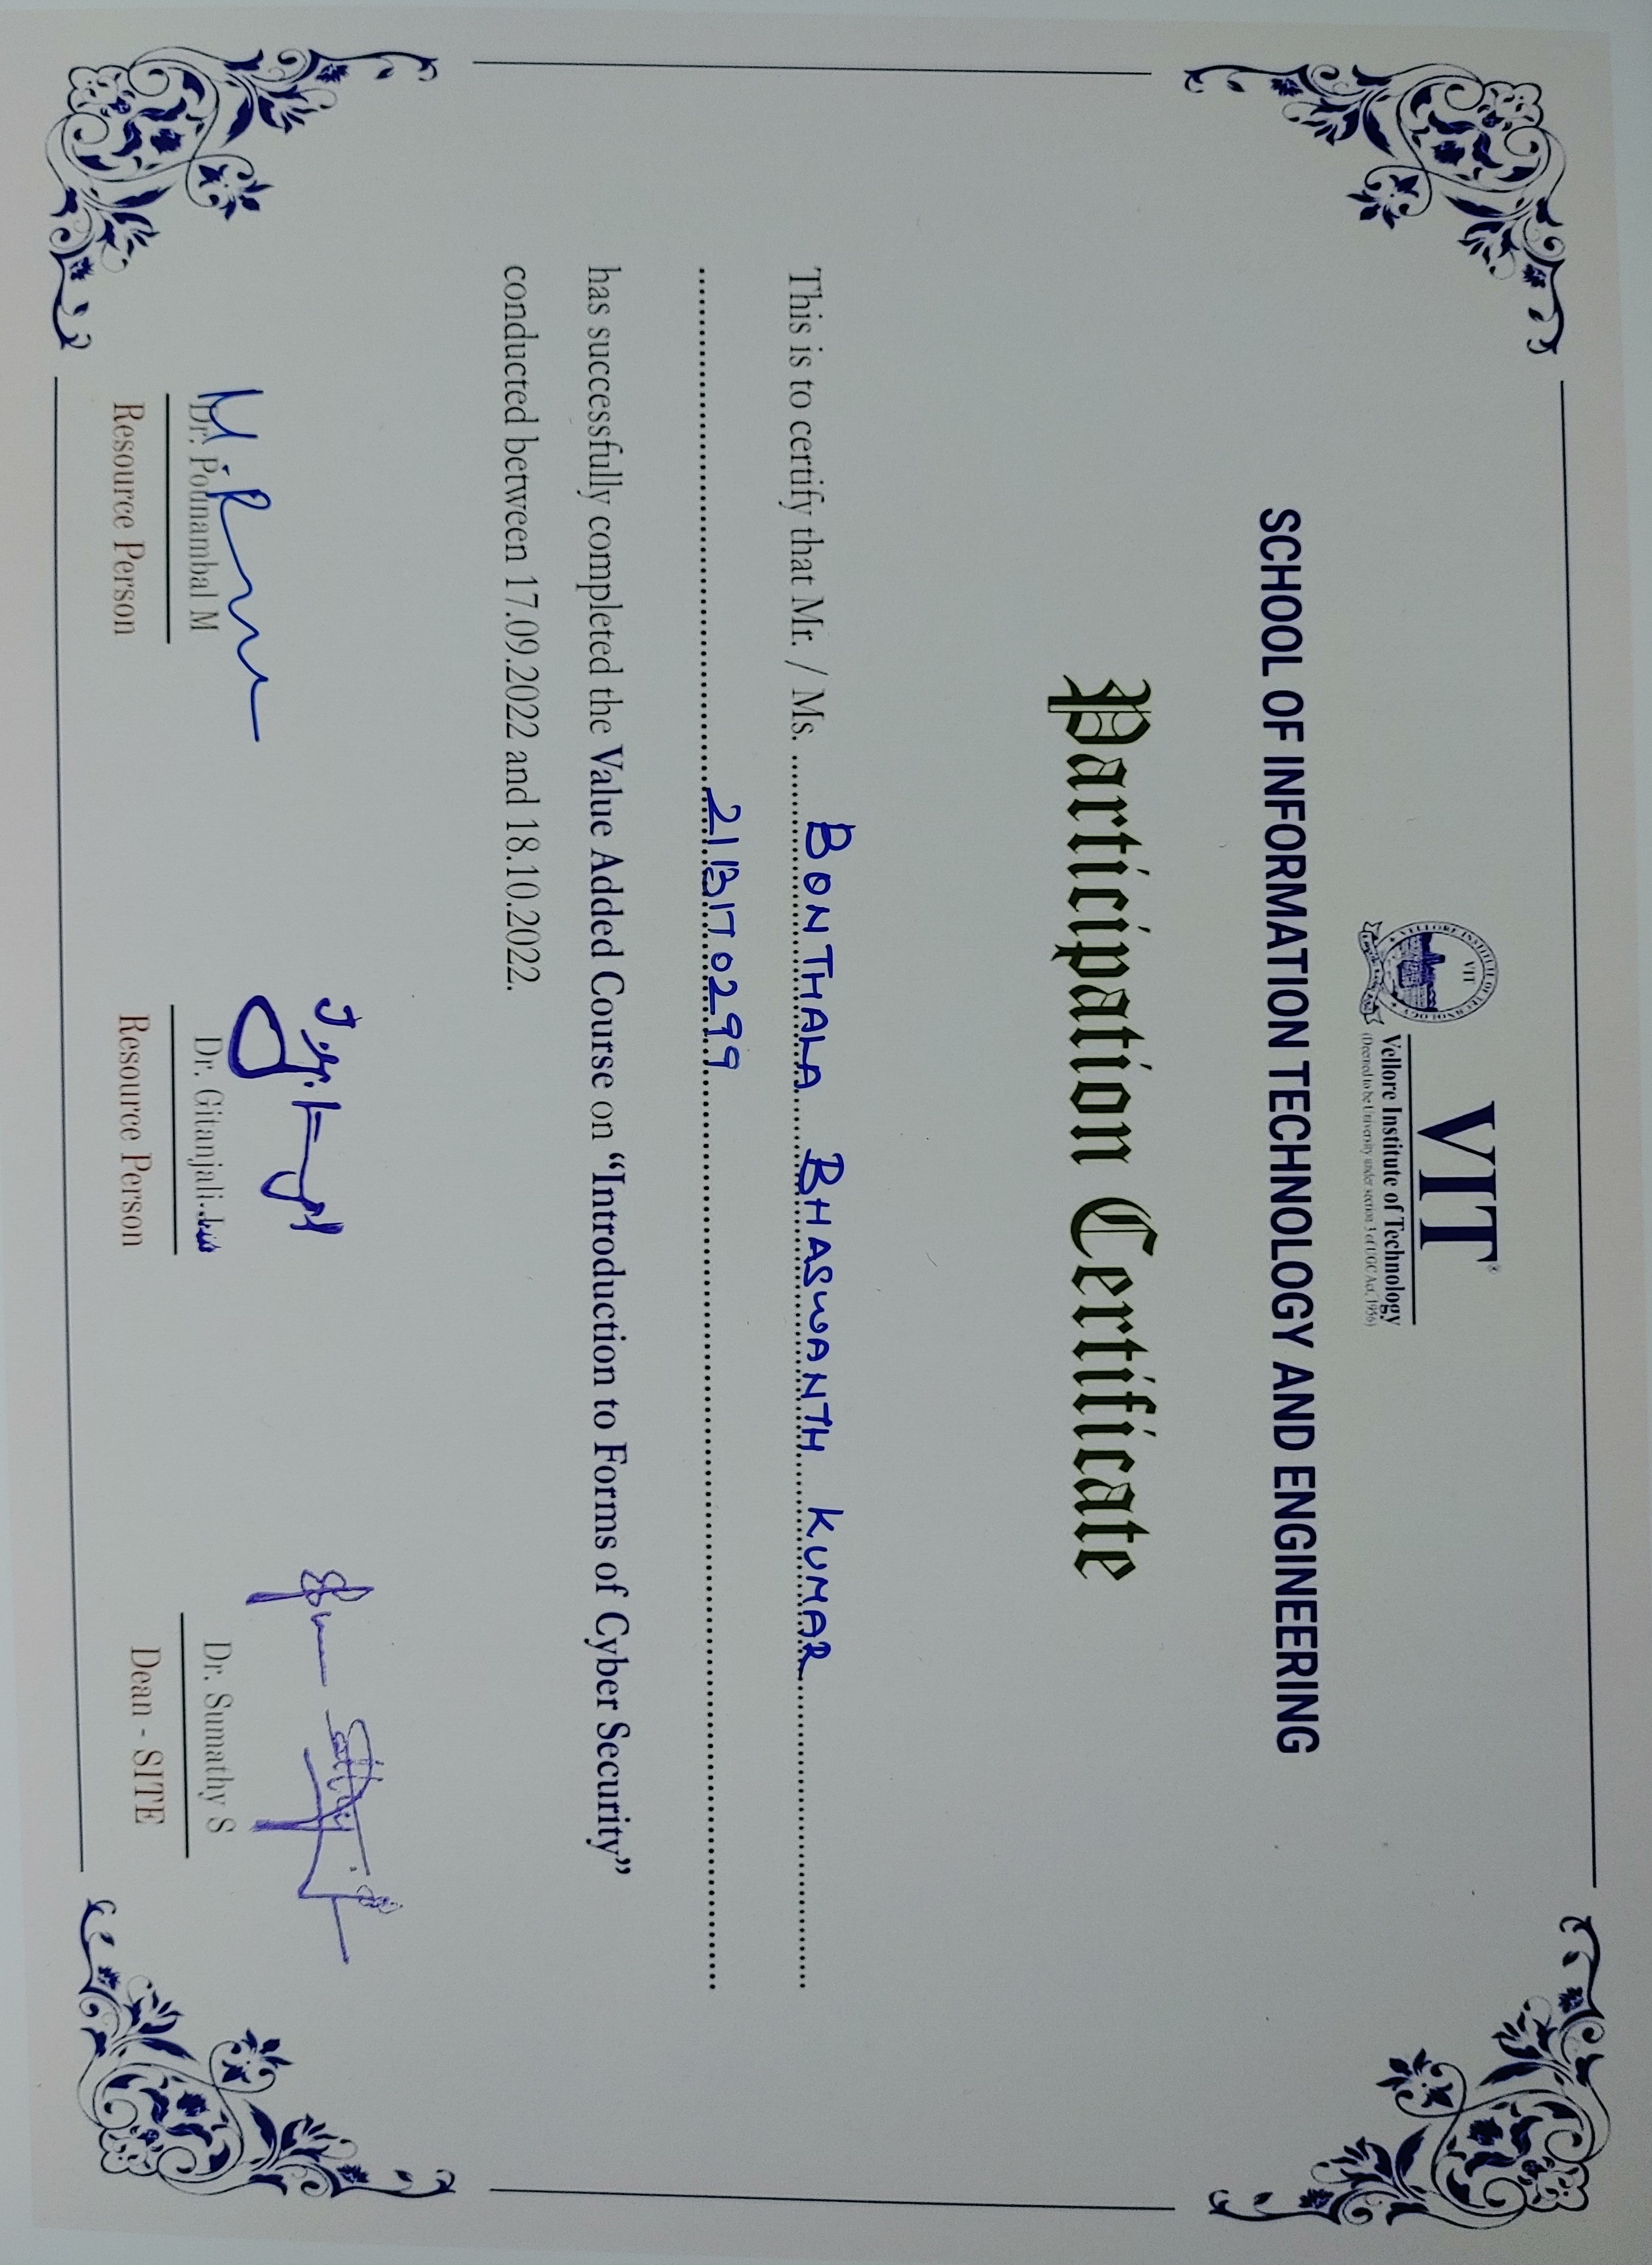 VELLORE INSTITUTE OF TECHNOLOGY
VIT
VIT
Vellore Institute of Technology
(Deemed to be University under section 3 of UGC Act, 1956)
SCHOOL OF INFORMATION TECHNOLOGY AND ENGINEERING
Participation Certificate
This is to certify that Mr. / Ms. BONTHALA BHASWANTH KUMAR
21BIT0299
has successfully completed the Value Added Course on “Introduction to Forms of Cyber Security”
conducted between 17.09.2022 and 18.10.2022.
Dr. Pounambal M
Dr. Gitanjali
Dr. Sumathy S
Resource Person
Resource Person
Dean - SITE